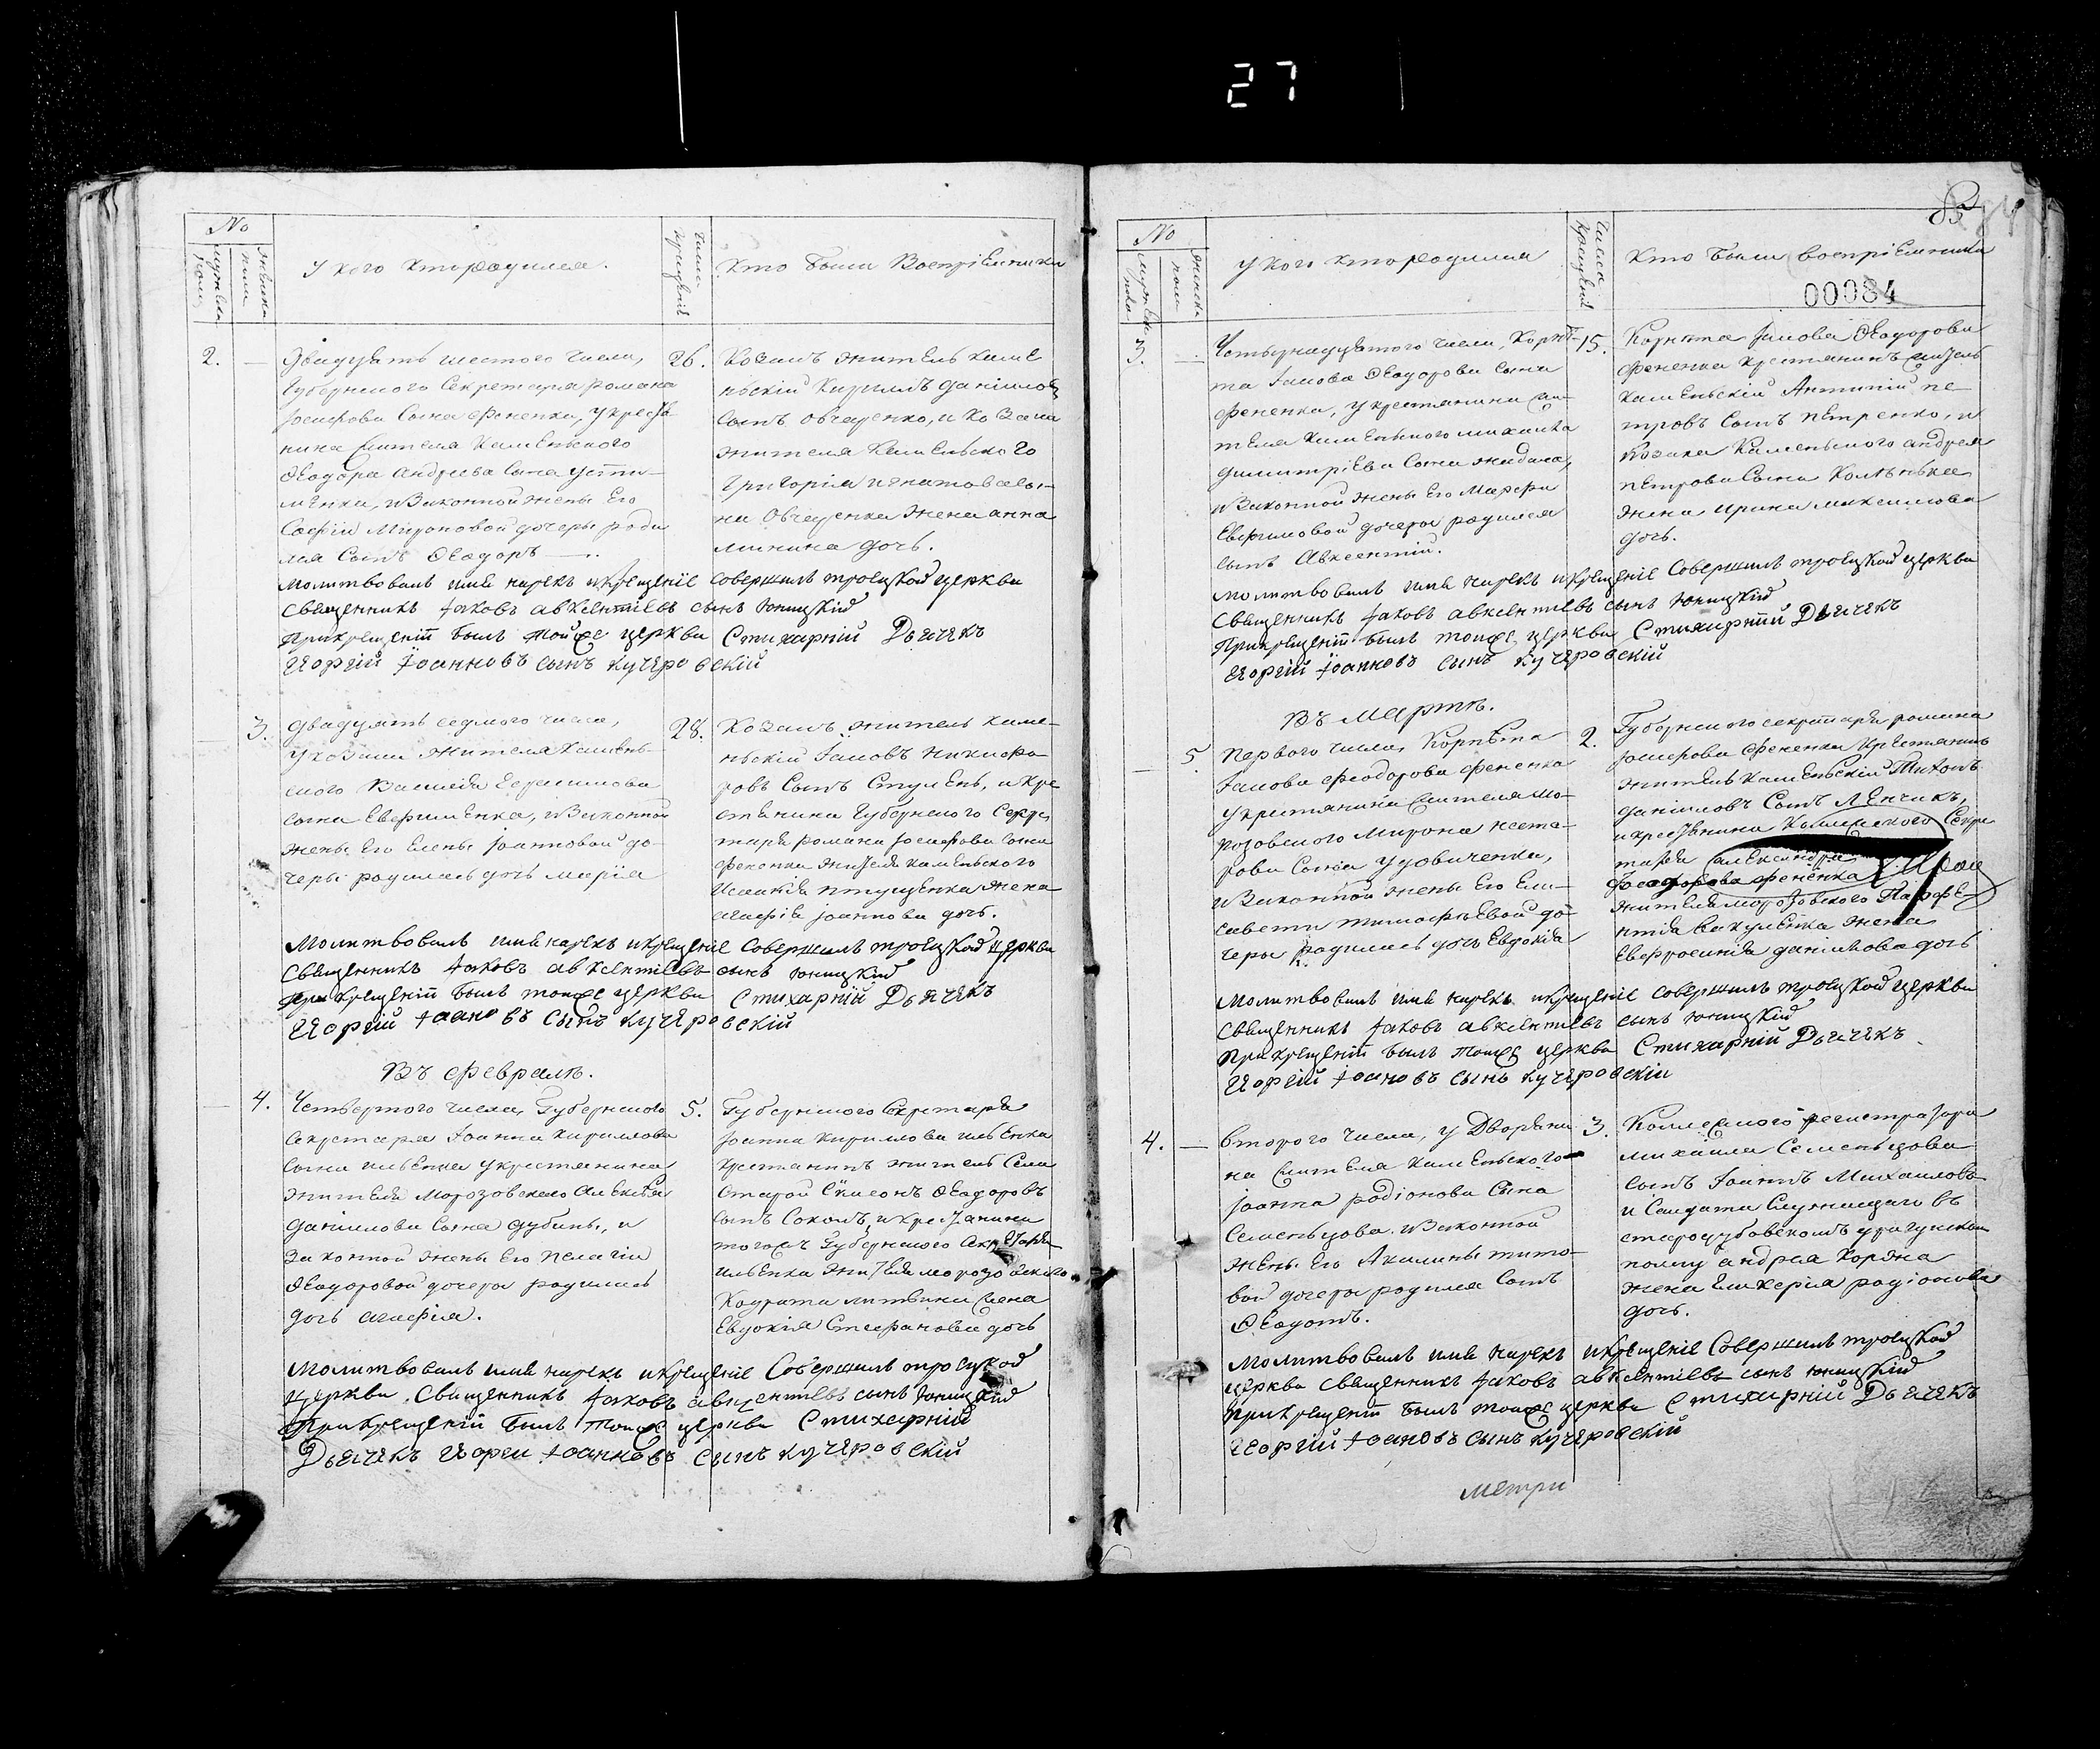 27
№
мужеска пола
женска пола
У кого кто родился.
Число крещенїй
Кто были Воспрїемники
2. — Двадцять шестого числа,
Губернского Секретаря Романа
Іосифова Сына Фененка, у крестья-
нина жителя Каменского
Ѳеодора Андреева Сына Усти-
менка, и Законной жены Его
Софїи Мироновой дочеры роди
лся Сынъ Ѳеодоръ —..
26.
Козакъ житель Каме
нскїй Кирилъ Данїиловъ
Сынъ Овчаренко, и Козака
жителя Каменского
Григорїя Игнатова сы-
на Овчаренка жена Анна
Минина дочь.
Молитвовалъ имя нарекъ и крещенїе совершилъ троецкой церкви
Священникъ Іаковъ Авксентїевъ сынъ Юницкїй
При крещенїи былъ тойже церкви Стихарнїй Дьячекъ
Георгїй Іоанновъ сынъ Кучеровскїй
3. Двадцять седмого числа,
У козака жителя Камен-
ского Василїя Герасимова
сына Ефименка, и Законной
жены Его Елены Іоанновой до-
черы родилась дочь Марїя
28.
Козакъ житель Каме-
нскїй Іаковъ Никифо
ровъ Сынъ Ступень, и кре
стянина Губернского Секре
таря Романа Іосифова Сына
Фененка жителя Каменского
Исаакїя Птущенка жена
Агафїя Іоаннова дочь.
Молитвовалъ имя нарекъ и крещенїе совершилъ троецкой церкви
Священникъ Іаковъ Авксентїевъ сынъ Юницкїй
При крещенїи былъ тойже церкви Стихарнїй Дьячекъ
Георгїй Іоановъ сынъ Кучеровскїй
Въ Февралѣ.
4. Четвертого числа, Губернского
Секретаря Іоанна Кирилова
сына Ильенка у крестянина
жителя Морозовского Алексѣя
Данїилова Сына Дубины, и
Законной жены Его Пелагїи
Ѳеодоровой дочеры родилась
дочь Агафїя.
5.
Губернского Секретаря
Іоанна Кирилова Ильенка
крестянинъ житель Села
Старой Ѳеодоровъ
сынъ Соколъ, и крестянина
тогожъ Губернского Секретаря
Ильенка жителя Морозовского
Кодрата Литвина жена
Евдокїя Стефанова дочь
Молитвовалъ имя нарекъ и крещенїе Совершилъ троецкой
церкви Священникъ Іаковъ Авксентїевъ сынъ Юницкїй
При крещенїи былъ тойже церкви Стихарнїй
Дьячекъ Георги Іоанновъ сынъ Кучеровскїй
85 84
№
мужеска пола
женска пола
У кого кто родился
Число крещенїй
Кто были воспрїемники
00084
3. — Четырнадцятого числа, Корне-
та Іакова Ѳеодорова Сына
Фененка, у крестянина жи-
теля Каменского Михаила
Димитрїева Сына Жидана,
и Законной жены Его Марфы
Евфимовой дочеры родился
сынъ Авксентїй.
15.
Корнета Іакова Ѳеодорова
Фененка крестянинъ житель
Каменскїй Антипїй Пе
тровъ Сынъ Петренко, и
Козака Каменского Андрея
Петрова Сына
жена Ирина Максимова
дочь.
Молитвовалъ имя нарекъ и крещенїе Совершилъ троецкой церкви
Священникъ Іаковъ Авксентїевъ сынъ Юницкїй
При крещенїи былъ тойже церкви Стихарнїй Дьячекъ
Георгїй Іоанновъ сынъ Кучеровскїй
Въ Мартѣ.
— 5. Первого числа, Корнета
Іакова Феодорова Фененка
у крестянина жителя Мо-
розовского Мирона Несто-
рова Сына Удовиченка,
и Законной жены Его Ели-
савети Тимофѣевой до-
черы родилась дочь Евдокїя
2.
Губернского секретаря Романа
Іосифова Фененка крестянинъ
житель Каменскїй Титъ
Данїиловъ Сынъ Ленчикъ,
и крестянина Секре
таря Александра
Феодорова Фененка
жителя Морозовского Парфе
нтїя Вакуленка жена
Евфросинїя Данїилова дочь
Молитвовалъ имя нарекъ и крещенїе совершилъ троецкой церкви
Священникъ Іаковъ Авксентїевъ сынъ Юницкїй
При крещенїи былъ тойже церкви Стихарнїй Дьячекъ
Георгїй Іоановъ сынъ Кучеровскїй
4. — Второго числа, у Дворяни
на жителя Каменского
Іоанна Родїонова Сына
Семенцова и Законной
жены Его Акилины Тито-
вой дочеры родился Сынъ
Ѳеодотъ.
3.
Коллежского регистратора
Михаила Семенцова
сынъ Іоаннъ Михаиловъ
и Солдата Служащаго въ
стародубовскомъ драгунском
полку Андрея Коржа
жена Гликерїя Родїонова
дочь.
Молитвовалъ имя нарекъ и крещенїе Совершилъ троецкой
церкви Священникъ Іаковъ Авксентїевъ сынъ Юницкїй
При крещенїи былъ тойже церкви Стихарнїй Дьячекъ
Георгїй Іоановъ сынъ Кучеровскїй
Метри